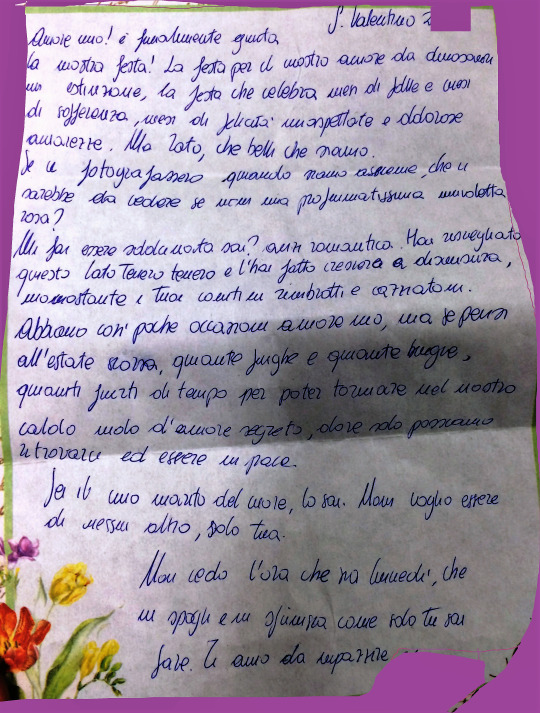 S. Valentino
Amore mio! è finalmente giunta
la nostra festa! La festa per il nostro amore da dinosauri
in estinzione, la festa che celebra mesi di follie e mesi
di sofferenza, mesi di felicità inaspettate e dolorose
amarezze. Ma Zato, che belli che siamo.
Se ci fotografassero quando siamo assieme, che ci
sarebbe da vedere se non una profumatissima nuvoletta
rosa?
Mi fai essere addirittura sai? romantica. Hai risvegliato
questo lato tenero tenero e l'hai fatto crescere a dismisura,
nonostante i tuoi continui rimbrotti e cazziatoni.
Abbiamo così poche occasioni amore mio, ma se pensi
all'estate scorsa, quante fughe e quante bugie,
quanti furti di tempo per poter tornare nel nostro
caldo nido d'amore segreto, dove solo possiamo
ritrovarci ed essere in pace.
Sei il mio marito del cuore, lo sai. Non voglio essere
di nessun altro, solo tua.
Non vedo l'ora che sia lunedì, che
mi spogli e mi sfinisca come solo tu sai
fare. Ti amo da impazzire